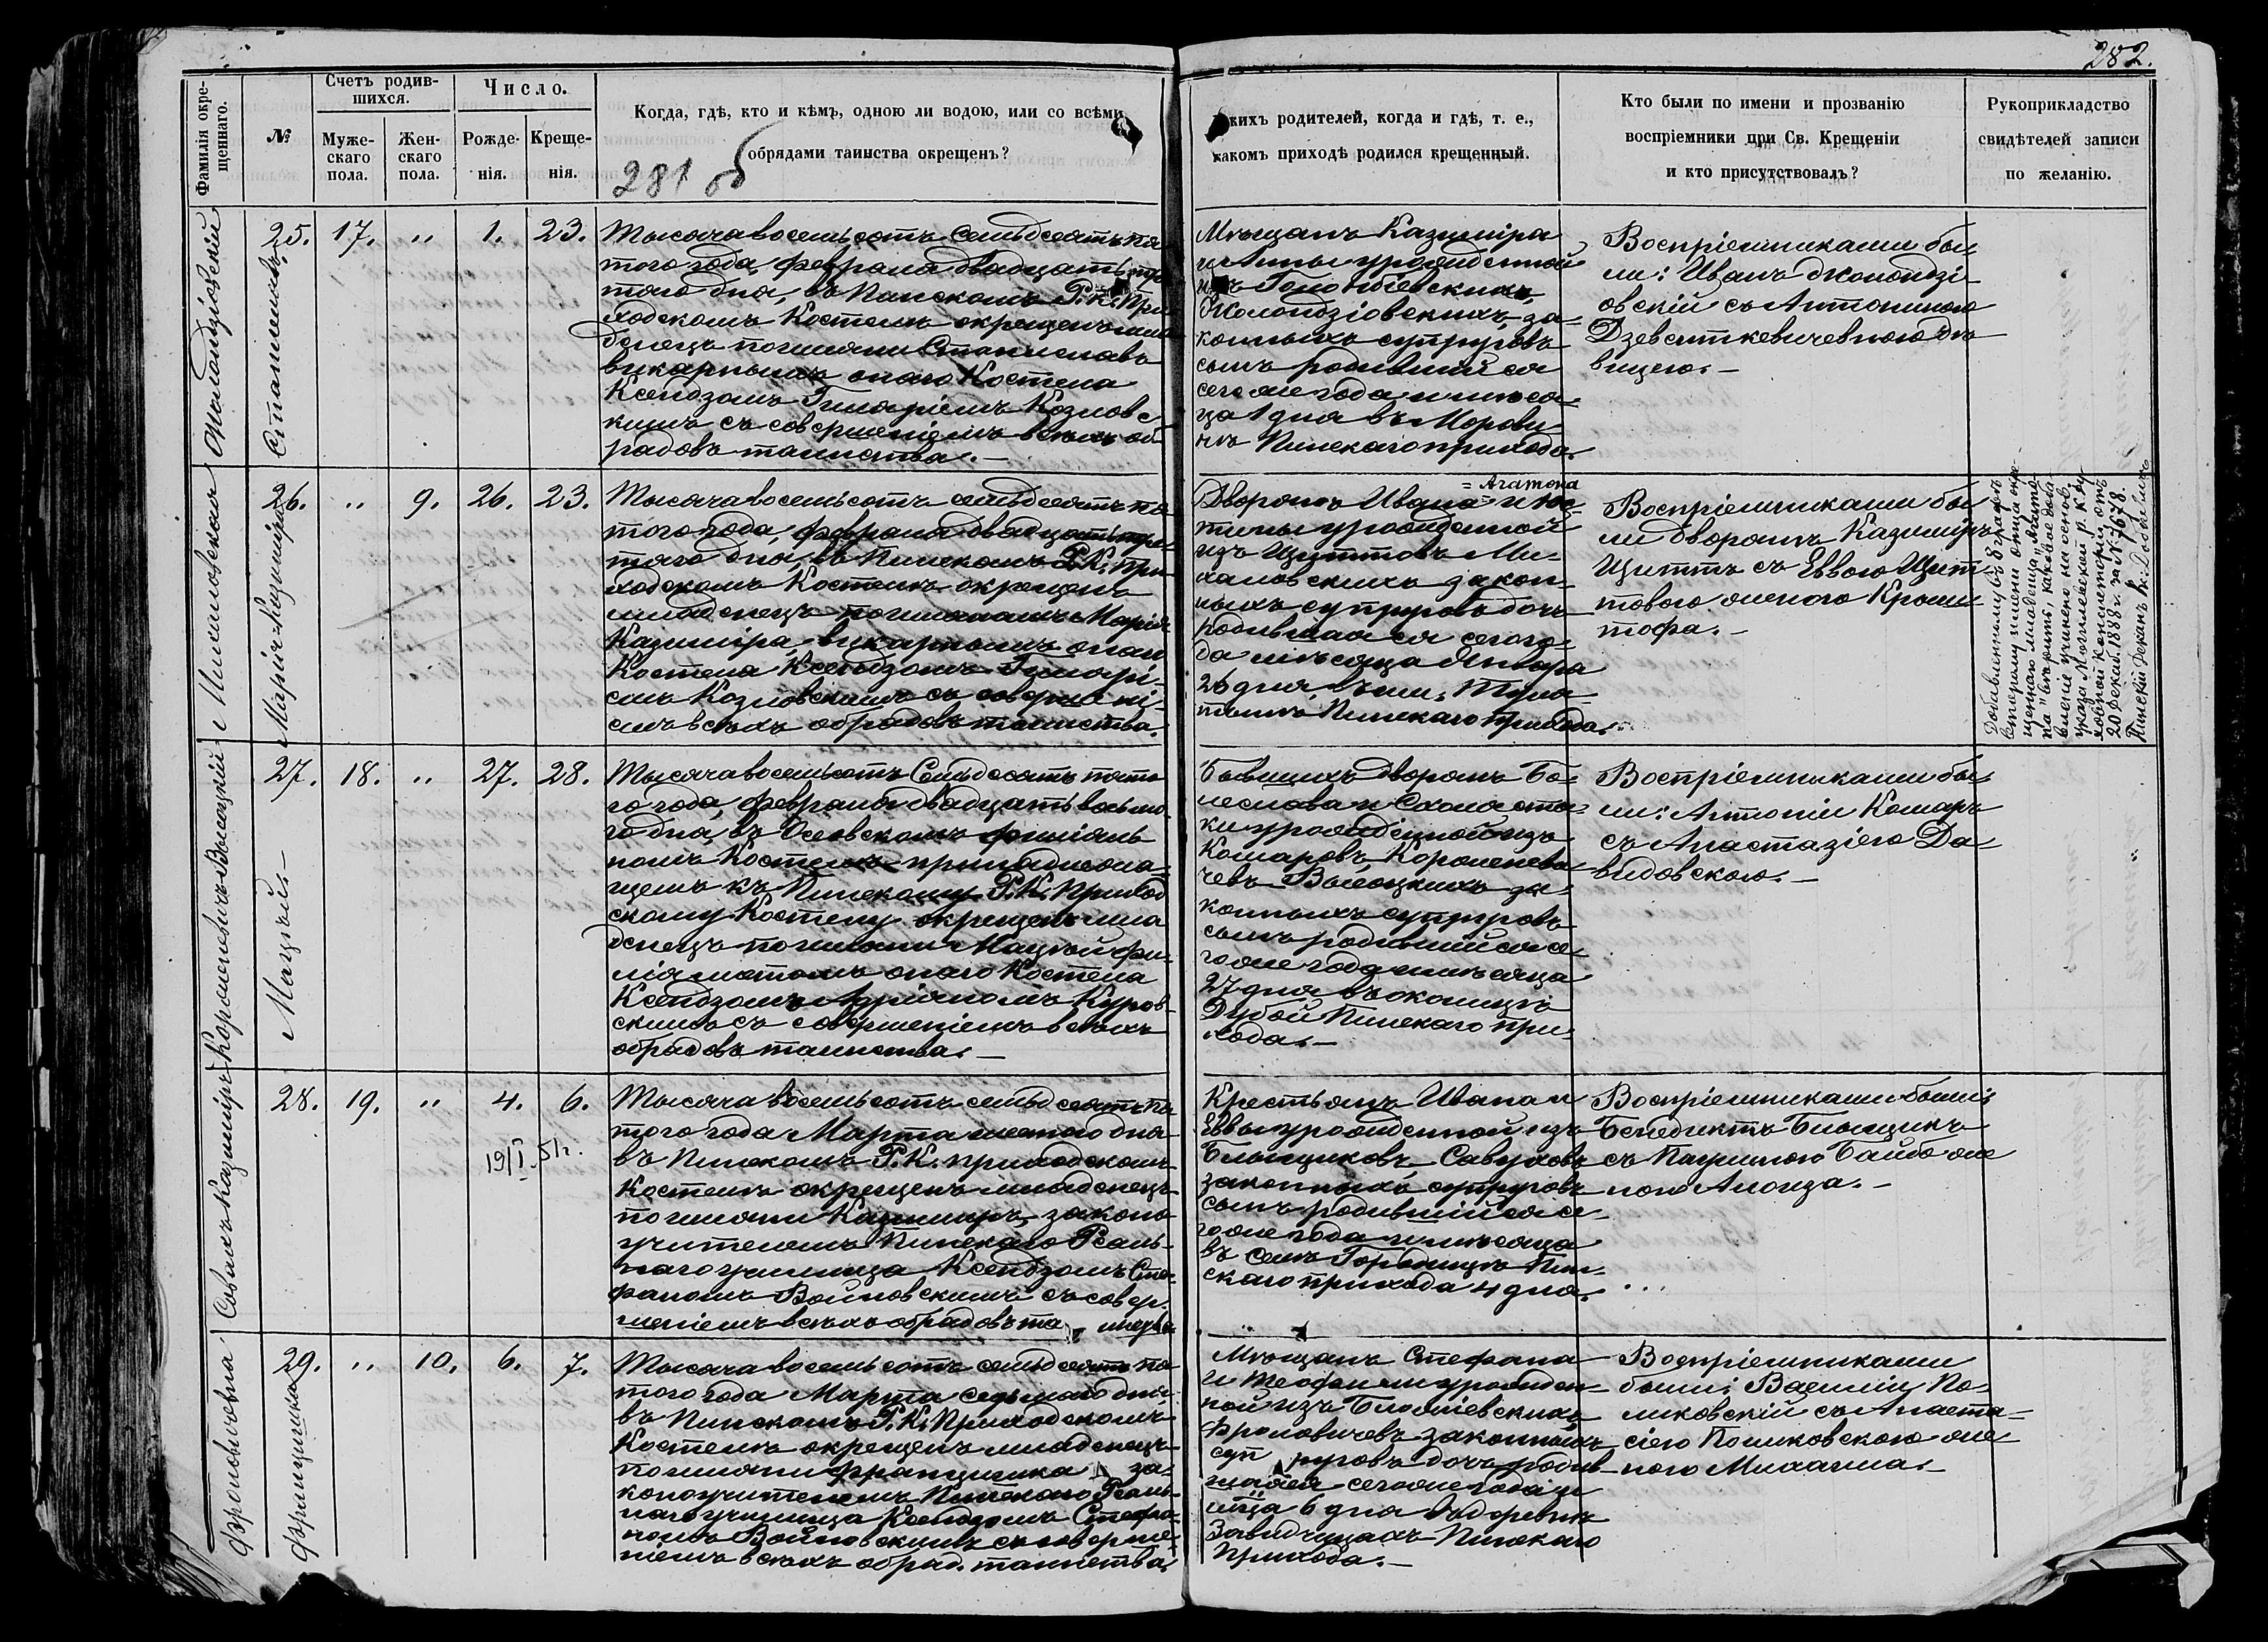 282.
Фамилія окре-
щеннаго.
№
Счетъ родив-
шихся.
Муже-
скаго
пола.
Жен-
скаго
пола.
Число.
Рожде-
нія.
Креще-
нія.
Когда, гдѣ, кто и кѣмъ, одною ли водою, или со всѣми
обрядами таинства окрещенъ?
281 об
кихъ родителей, когда и гдѣ, т. е.,
какомъ приходѣ родился крещенный.
Кто были по имени и прозванію
воспріемники при Св. Крещеніи
и кто присутствовалъ?
Рукоприкладство
свидѣтелей записи
по желанію.
Жолондзіовскій
Станиславъ.
25. 17. " 1. 23.
Тысяча восемьсотъ семьдесятъ пя
того года, февраля двадцать тре
тяго дня, въ Пинскомъ Р. К. При
ходскомъ Костелѣ окрещенъ мла
денецъ по имени Станиславъ
викарнымъ онаго Костела
Ксендзомъ Гиляріемъ Козловс
кимъ съ совершеніемъ всѣхъ об
рядовъ таинства.—
Мѣщанъ Казиміра
и Анны урожденной
изъ Голомбіевскихъ,
Жолондзіовскихъ, за-
конныхъ супруговъ
сынъ родившійся
сего же года и мѣся-
ца 1 дня въ Морови-
нѣ Пинскаго прихода.
Воспріемниками бы
ли: Иванъ Жолондзі-
овскій съ Антониною
Дзевяткевичевною дѣ
вицею.—
Михаловская
Марія-Казиміра
26. " 9. 26. 23.
Тысяча восемьсотъ семьдесятъ пя
того года, февраля двадцать тре
тяго дня, въ Пинскомъ Р. К. При
ходскомъ Костелѣ окрещенъ
младенецъ по именамъ Марія
Казиміра, викарнымъ онаго
Костела Ксендзомъ Гилярі-
емъ Козловскимъ съ совершені
емъ всѣхъ обрядовъ таинства.
= Агатона
Дворянъ Ивана = и Юс-
тины урожденной
изъ Щиттовъ Ми-
халовскихъ закон-
ныхъ супруговъ дочь
родившаяся сего го-
да мѣсяца Января
26 дня въ им.
Пинскаго прихода.
Воспріемниками бы
ли дворянъ Казиміръ
Щиттъ съ Еввою Щит-
товою женою Криш
тофа.—
Добавленному въ 8 графѣ
второму имени отца окре-
щеннаго младенца "Агато-
на" вѣрить, каковое доба-
вленіе учинено на основ.
указа Могилевской р. к. ду-
ховной Консисторіи отъ
20 Декаб. 1888 г. за № 7678.
Пинскій Деканъ К.
Короленовичъ-Высоцкій
Мацѣй.—
27. 18. " 27. 28.
Тысяча восемьсотъ семьдесятъ пято
го года, февраля двадцать восьмо
го дня, въ Осовскомъ филіяль
номъ Костелѣ принадлежа-
щемъ къ Пинскому Р. К. Приход
скому Костелу окрещенъ мла
денецъ по имени Мацѣй фи-
ліялистомъ онаго Костела
Ксендзомъ Адріяномъ Куров-
скимъ съ совершеніемъ всѣхъ
обрядовъ таинства.—
Бывшихъ дворянъ Бо-
леслава и Схоласти-
ки урожденной изъ
Комаровъ, Короленеви
чевъ Высоцкихъ за-
конныхъ супруговъ
сынъ родившійся се-
го же года и мѣсяца
27 дня въ околицѣ
Дубой Пинскаго при-
хода.—
Воспріемниками бы
ли: Антоній Комаръ
съ Анастазіею Да
видовскою.—
Совалхъ Казиміръ
28. 19. " 4. 6.
19/I 51г.
Тысяча восемьсотъ семьдесятъ пя
того года Марта шестаго дня
въ Пинскомъ Р. К. приходскомъ
Костелѣ окрещенъ младенецъ
по имени Казиміръ, законо
учителемъ Пинскаго Реаль-
наго училища Ксендзомъ Сте-
фаномъ Войновскимъ съ совер-
шеніемъ всѣхъ обрядовъ та инства
Крестьянъ Ивана и
Еввы урожденной изъ
Бѣльщиковъ, Савуховъ
законныхъ супруговъ
сынъ родившійся се-
го же года и мѣсяца
въ селѣ Городищѣ Пин-
скаго прихода 4 дня.
Воспріемниками были:
Бенедиктъ Бѣльщикъ
съ Паулиною Байбо же
ною Алоиза.—
Фроновичевна
Францишка
29. " 10. 6. 7.
Тысяча восемьсотъ семьдесятъ пя
того года Марта седьмаго дня
въ Пинскомъ Р. К. Приходскомъ
Костелѣ окрещенъ младенецъ
по имени Францишка за-
коноучителемъ Пинскаго Реаль-
наго училища Ксендзомъ Стефа-
номъ Войновскимъ съ соверше-
ніемъ всѣхъ обряд. таинства.
Мѣщанъ Стефана
и Теофили урожден-
ной изъ
Фроновичевъ законныхъ
суп руговъ дочь родив-
шаяся сего же года и
мѣца 6 дня въ деревнѣ
Завидчицахъ Пинскаго
прихода.—
Воспріемниками
были: Василій По-
ликовскій съ Анаста-
сіею Поликовскою же
ною Михаила.—